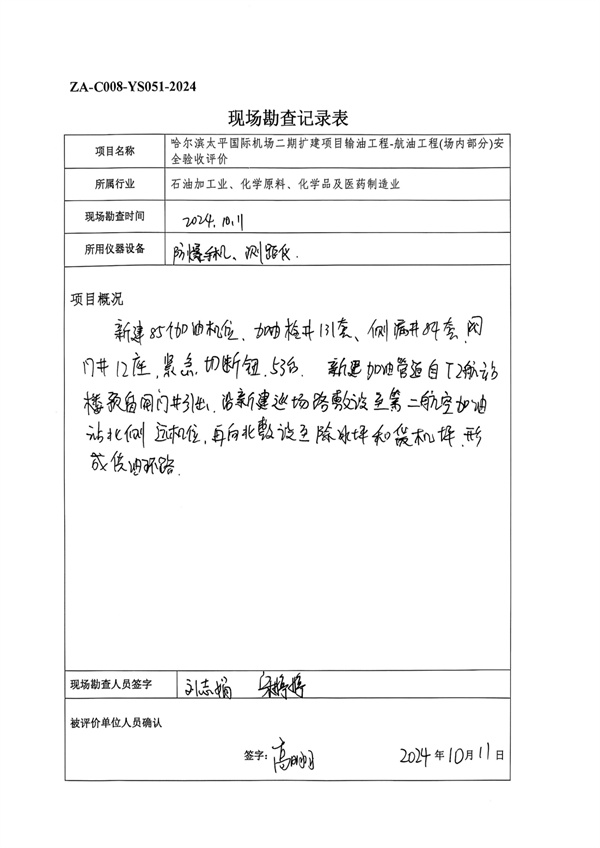 ZA-C008-YS051-2024
现场勘查记录表
项目名称
哈尔滨太平国际机场二期扩建项目输油工程-航油工程(场内部分)安
全验收评价
所属行业
石油加工业、化学原料、化学品及医药制造业
现场勘查时间
2024.10.11
所用仪器设备
防爆手机、测距仪.
项目概况
新建85个加油机位、加油栓井131套、侧漏井84套、阀
门井12座,紧急切断钮53台. 新建加油管道自T2航站
楼预留阀门井引出,沿新建巡场路敷设至第二航空加油
站北侧远机位,再向北敷设至除冰坪和货机坪,形
成供油环路.
现场勘查人员签字
刘志娟
被评价单位人员确认
签字:
2024年10月11日